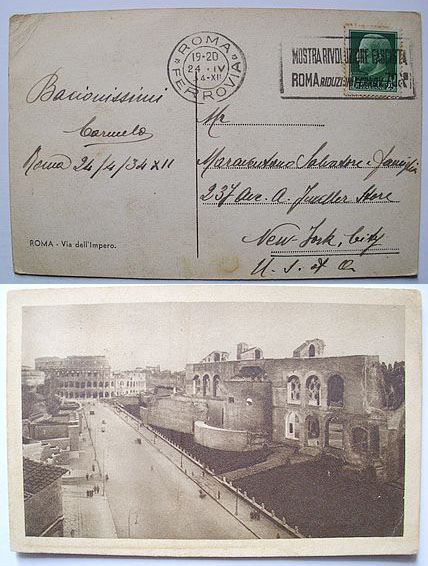 ROMA
FERROVIA
19-20
24 · IV
34-XII
MOSTRA RIVOLUZIONE FASCISTA
ROMA RIDUZIONI
Bacionissimi
Carmelo
Roma 24/4/34 XII
Mr
Maraventano Salvatore e famiglia
237 Ave. A. Jweller Store
New-York, City
U. S. of A.
ROMA - Via dell'Impero.